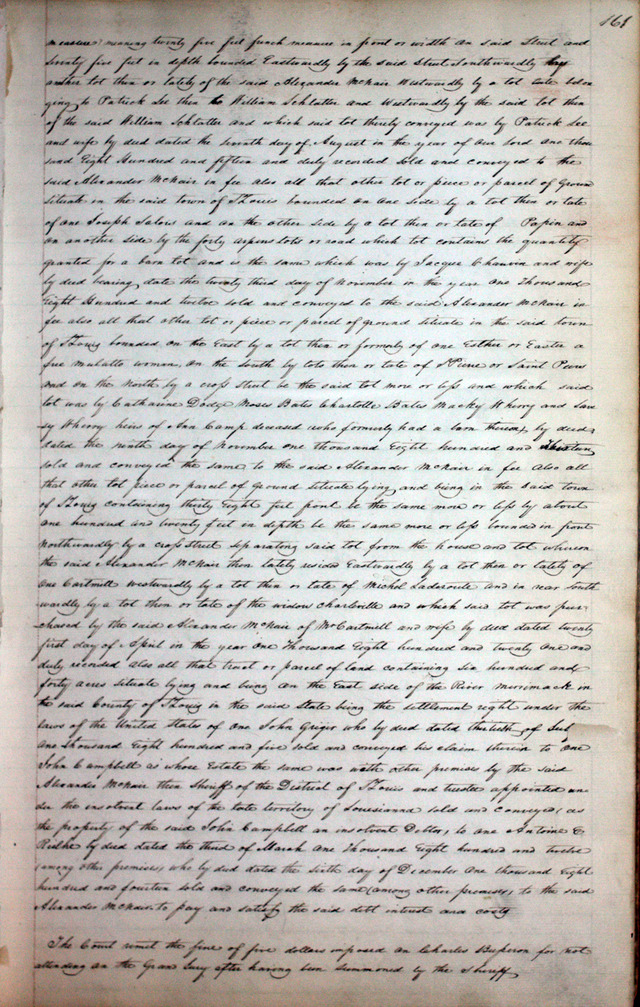 161
measure) meaning twenty five feet french measure in front or width on said Street and
seventy five feet in depth bounded Eastwardly by the said Street Southwardly by
another lot then or lately of the said Alexander McNair Westwardly by a lot late belon
ging to Patrick Lee then to William Schlatter and Westwardly by the said lot then
of the said William Schlatter and which said lot thirdly conveyed was by Patrick Lee
and wife by deed dated the seventh day of August in the year of our Lord one thou
sand Eight Hundred and fifteen and duly recorded sold and conveyed to the
said Alexander McNair in fee also all that other lot or piece or parcel of Groun
situate in the said town of St Louis bounded on one side by a lot then or late
of one Joseph Salois and on the other side by a lot then or late of Papin and
on another side by the forty arpens lots or road which lot contains the quantity
granted for a barn lot and is the same which was by Jacque Chauvin and wife
by deed bearing date the twenty third day of November in the year One thousand
Eight Hundred and twelve sold and conveyed to the said Alexander McNair in
fee also all that other lot or piece or parcel of ground situate in the said town
of St Louis bounded on the East by a lot then or formerly of one Esther or Easter a
free mulatto woman, on the South by lots then or late of St Pierre or Saint Piers
and on the North by a cross Street be the said lot more or less and which said
lot was by Catharine Dodge Moses Bates Charlotte Bates Macky Wherry and
Wherry heirs of Ann Camp deceased who formerly had a barn thereon, by deed
dated the ninth day of November one thousand Eight hundred and thirteen
sold and conveyed the same to the said Alexander McNair in fee also all
that other lot piece or parcel of Ground situate lying and being in the said town
of St Louis containing thirty Eight feet front be the same more or less by about
one hundred and twenty feet in depth be the same more or less bounded in front
Northwardly by a cross Street separating said lot from the house and lot whereon
the said Alexander McNair then lately resided Eastwardly by a lot then or lately of
one Cartmill westwardly by a lot then or late of Michel Laderoute and in rear South
wardly by a lot then or late of the widow Charleville and which said lot was pur
chased by the said Alexander McNair of McCartmill and wife by deed dated twenty
first day of April in the year one thousand Eight hundred and twenty one and
duly recorded also all that tract or parcel of land containing six hundred and
forty acres situate lying and being on the East side of the River Merrimack in
the said County of St Louis in the said State being the settlement right under the
laws of the United States of one John Griger who by deed dated thirtieth of
one thousand Eight hundred and five sold and conveyed his claim therein to one
John Campbell as whose Estate the same was with other premises by the said
Alexander McNair then Sheriff of the District of St Louis and trustee appointed un
der the insolvent laws of the late territory of Louisianna sold and conveyed, (as
the property of the said John Campbell an insolvent Debtor) to one Antoine
by deed dated the third of March one thousand Eight hundred and twelve
(among other premises) who by deed dated the sixth day of December one thousand Eight
hundred and fourteen sold and conveyed the same (among other premises) to the said
Alexander McNair, to pay and satisfy the said debt interest and costs
The Court remit the fine of five dollars imposed on Charles for not
attending on the Gran Jury after having been summoned by the Sheriff